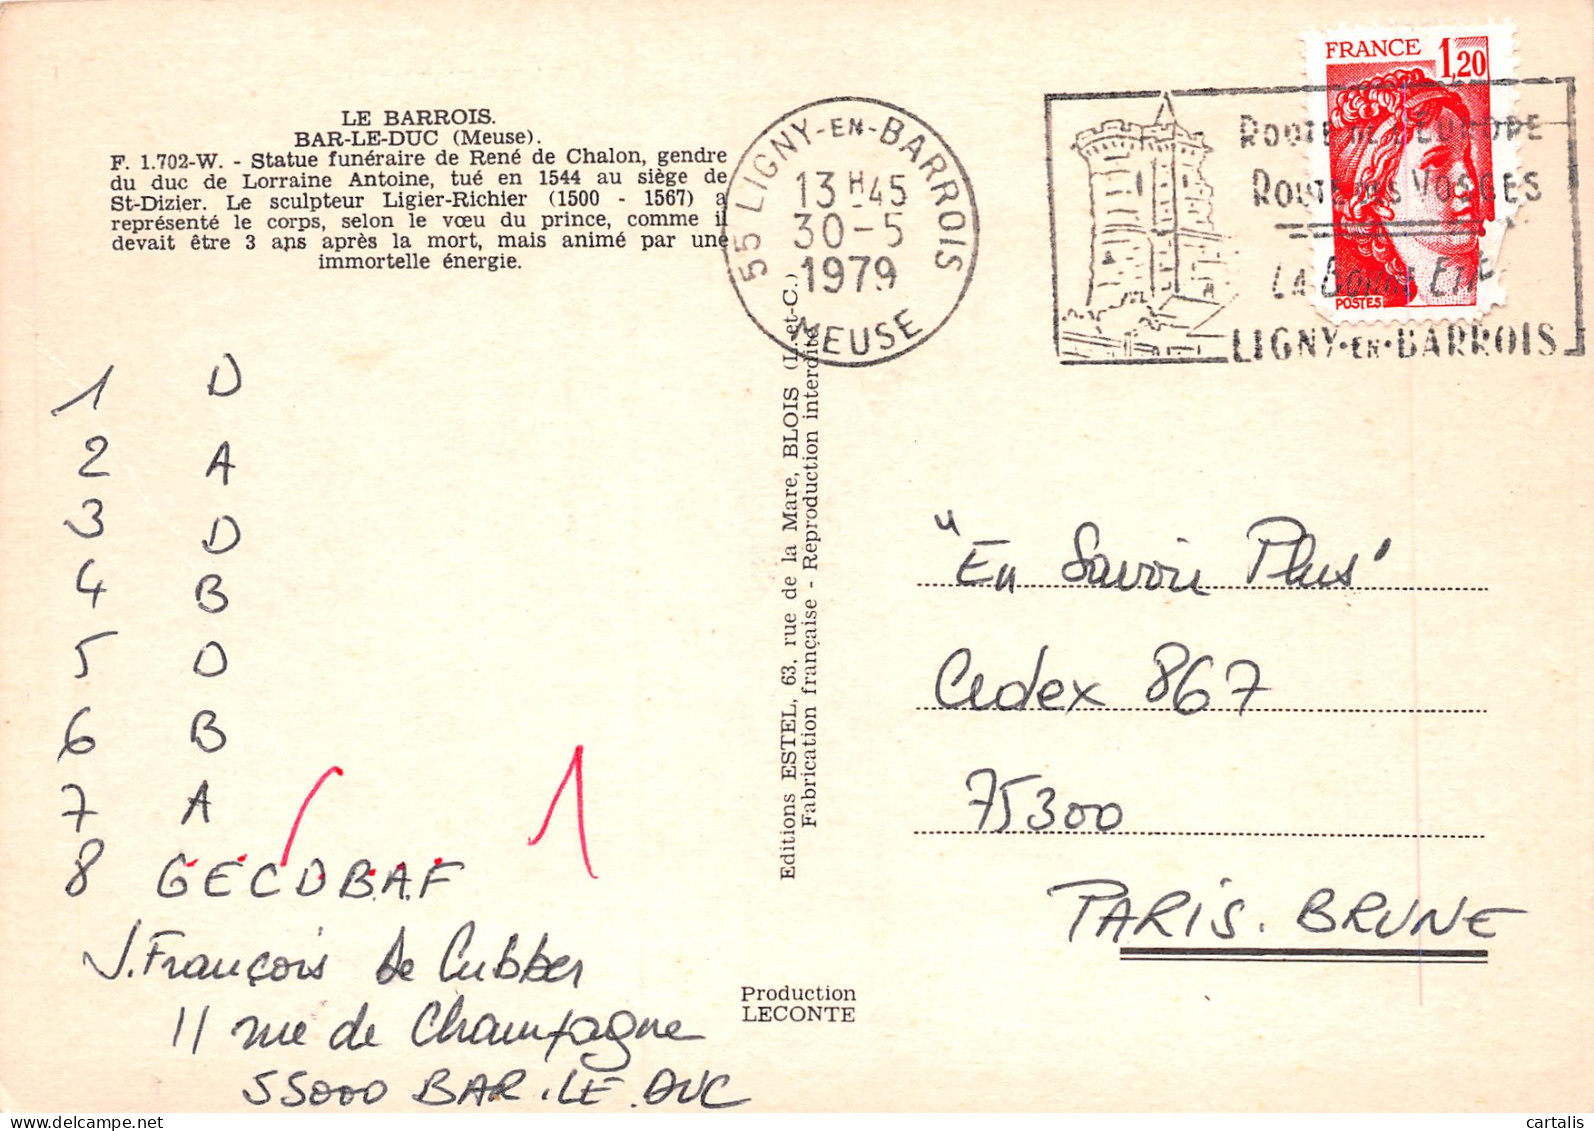 LE BARROIS.
BAR-LE-DUC (Meuse).
F. 1.702-W. - Statue funéraire de René de Chalon, gendre
du duc de Lorraine Antoine, tué en 1544 au siège de
St-Dizier. Le sculpteur Ligier-Richier (1500 - 1567) a
représenté le corps, selon le vœu du prince, comme il
devait être 3 ans après la mort, mais animé par une
immortelle énergie.
55 LIGNY-EN-BARROIS
13H45
30-5
1979
MEUSE
FRANCE 1,20
POSTES
ROUTE DE L'EUROPE
ROUTE DES VOSGES
LIGNY-EN-BARROIS
1 D
2 A
3 D
4 B
5 D
6 B
7 A
8 G.E.C.D.B.A.F
1
J. François de Cubber
11 rue de Champagne
55000 BAR.LE.DUC
Editions ESTEL, 63, rue de la Mare, BLOIS (L.-et-C.)
Fabrication française - Reproduction interdite
Production
LECONTE
"En Savoir Plus"
Cedex 867
75300
PARIS. BRUNE
cartalis
www.delcampe.net